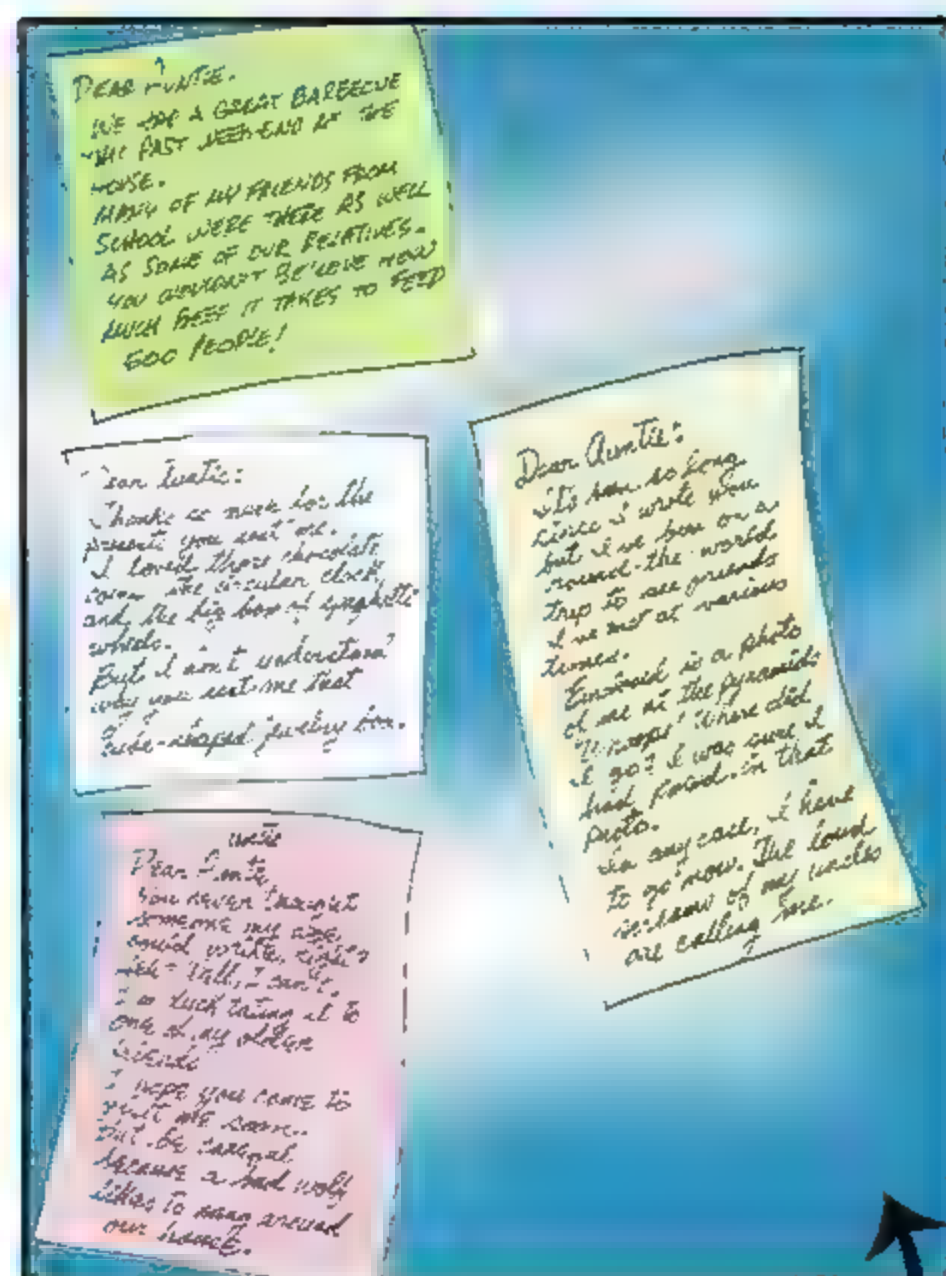 DEAR AUNTIE.
WE HAD A GREAT BARBECUE
THE PAST WEEK-END AT THE
HOUSE.
MANY OF MY FRIENDS FROM
SCHOOL WERE THERE AS WELL
AS SOME OF OUR RELATIVES.
YOU WOULDN'T BELIEVE HOW
MUCH BEEF IT TAKES TO FEED
500 PEOPLE!
Dear Auntie:
Thanks so much for the
presents you sent me.
I loved those chocolate
coins the circular clock,
and the big box of spaghetti
wheels.
But I don't understand
why you sent me that
cube-shaped jewelry box.
Dear Auntie
You never thought
someone my age
could write,
Well, I can't.
I'm tating it to
one of my older
friends
I hope you come to
visit me soon.
But be careful
because a bad wolf
likes to hang around
our house.
Dear Auntie:
It's been so long
since I wrote you
but I've been on a
round-the-world
trip to see friends
I've met at various
times.
Enclosed is a photo
of me at the pyramids
Whoops! Where did
I go? I was sure I
had posed in that
photo.
In any case, I have
to go now. The loud
screams of my uncles
are calling me.